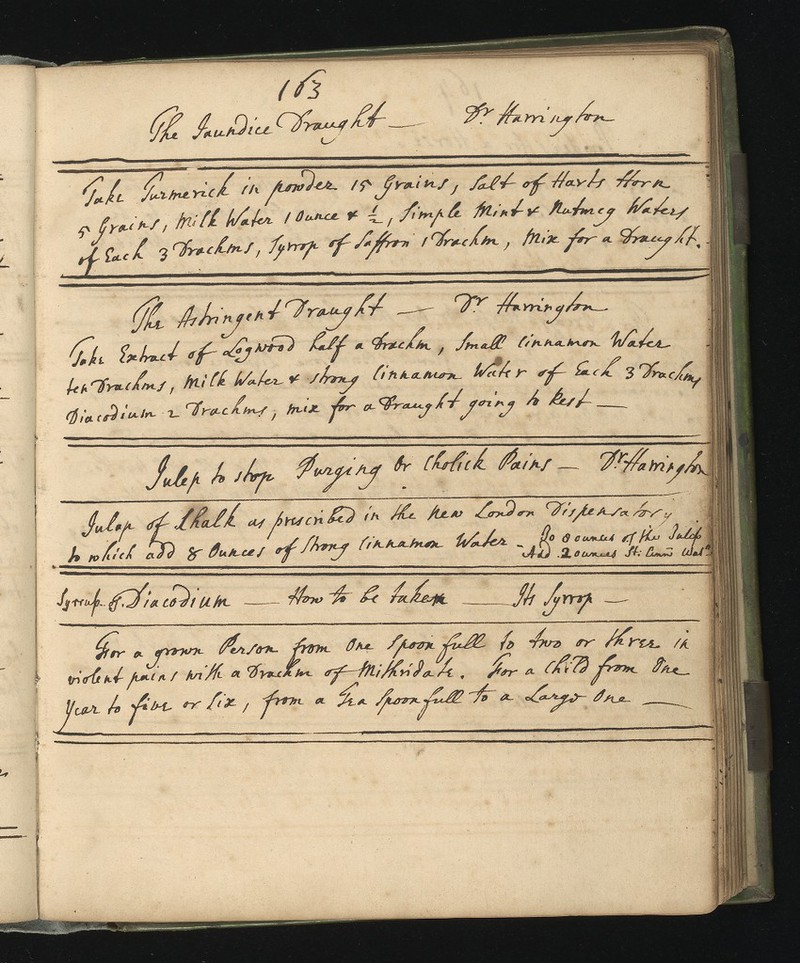 163
The Jaundice Draught — Dr Harrington
Take Turmerick in powder 15 Grains, Salt of Harts Horn
5 Grains, Milk Water 1 Ounce & ½, Simple Mint & Nutmeg Waters
of Each 3 Drachms, Syrrop of Saffron 1 Drachm, Mix for a Draught.
The Astringent Draught — Dr Harrington
Take Extract of Logwood half a Drachm, Small Cinnamon Water
ten Drachms, Milk Water & strong Cinnamon Water of Each 3 Drachms
Diacodium 2 Drachms, mix for a Draught going to Rest —
Julep to stop Purging or Cholick Pains — Dr Harrington
Julap of Chalk as prescribed in the new London Dispensatory
to which add 8 Ounces of Strong Cinnamon Water - To 8 ounces of the Julep
Add 2 ounces St: Cinn: Watr
Syrrup of Diacodium — How to be taken — Its Syrrop —
For a grown Person from One Spoonfull to two or three in
violent pains with a Drachm of Mithridate. For a Child from One
Year to five or Six, from a Tea Spoonfull to a Large One —